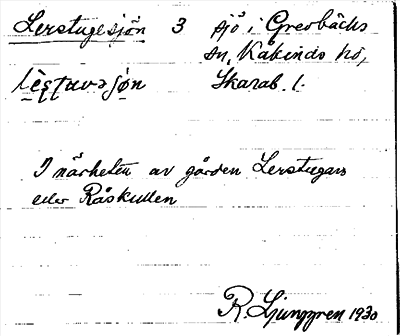 Lerstugesjön 3 sjö i Grevbäcks
sn, Kåkinds hd,
Skarab. l.
I närheten av gården Lerstugan
eller Råskullen
R. Ljunggren 1930